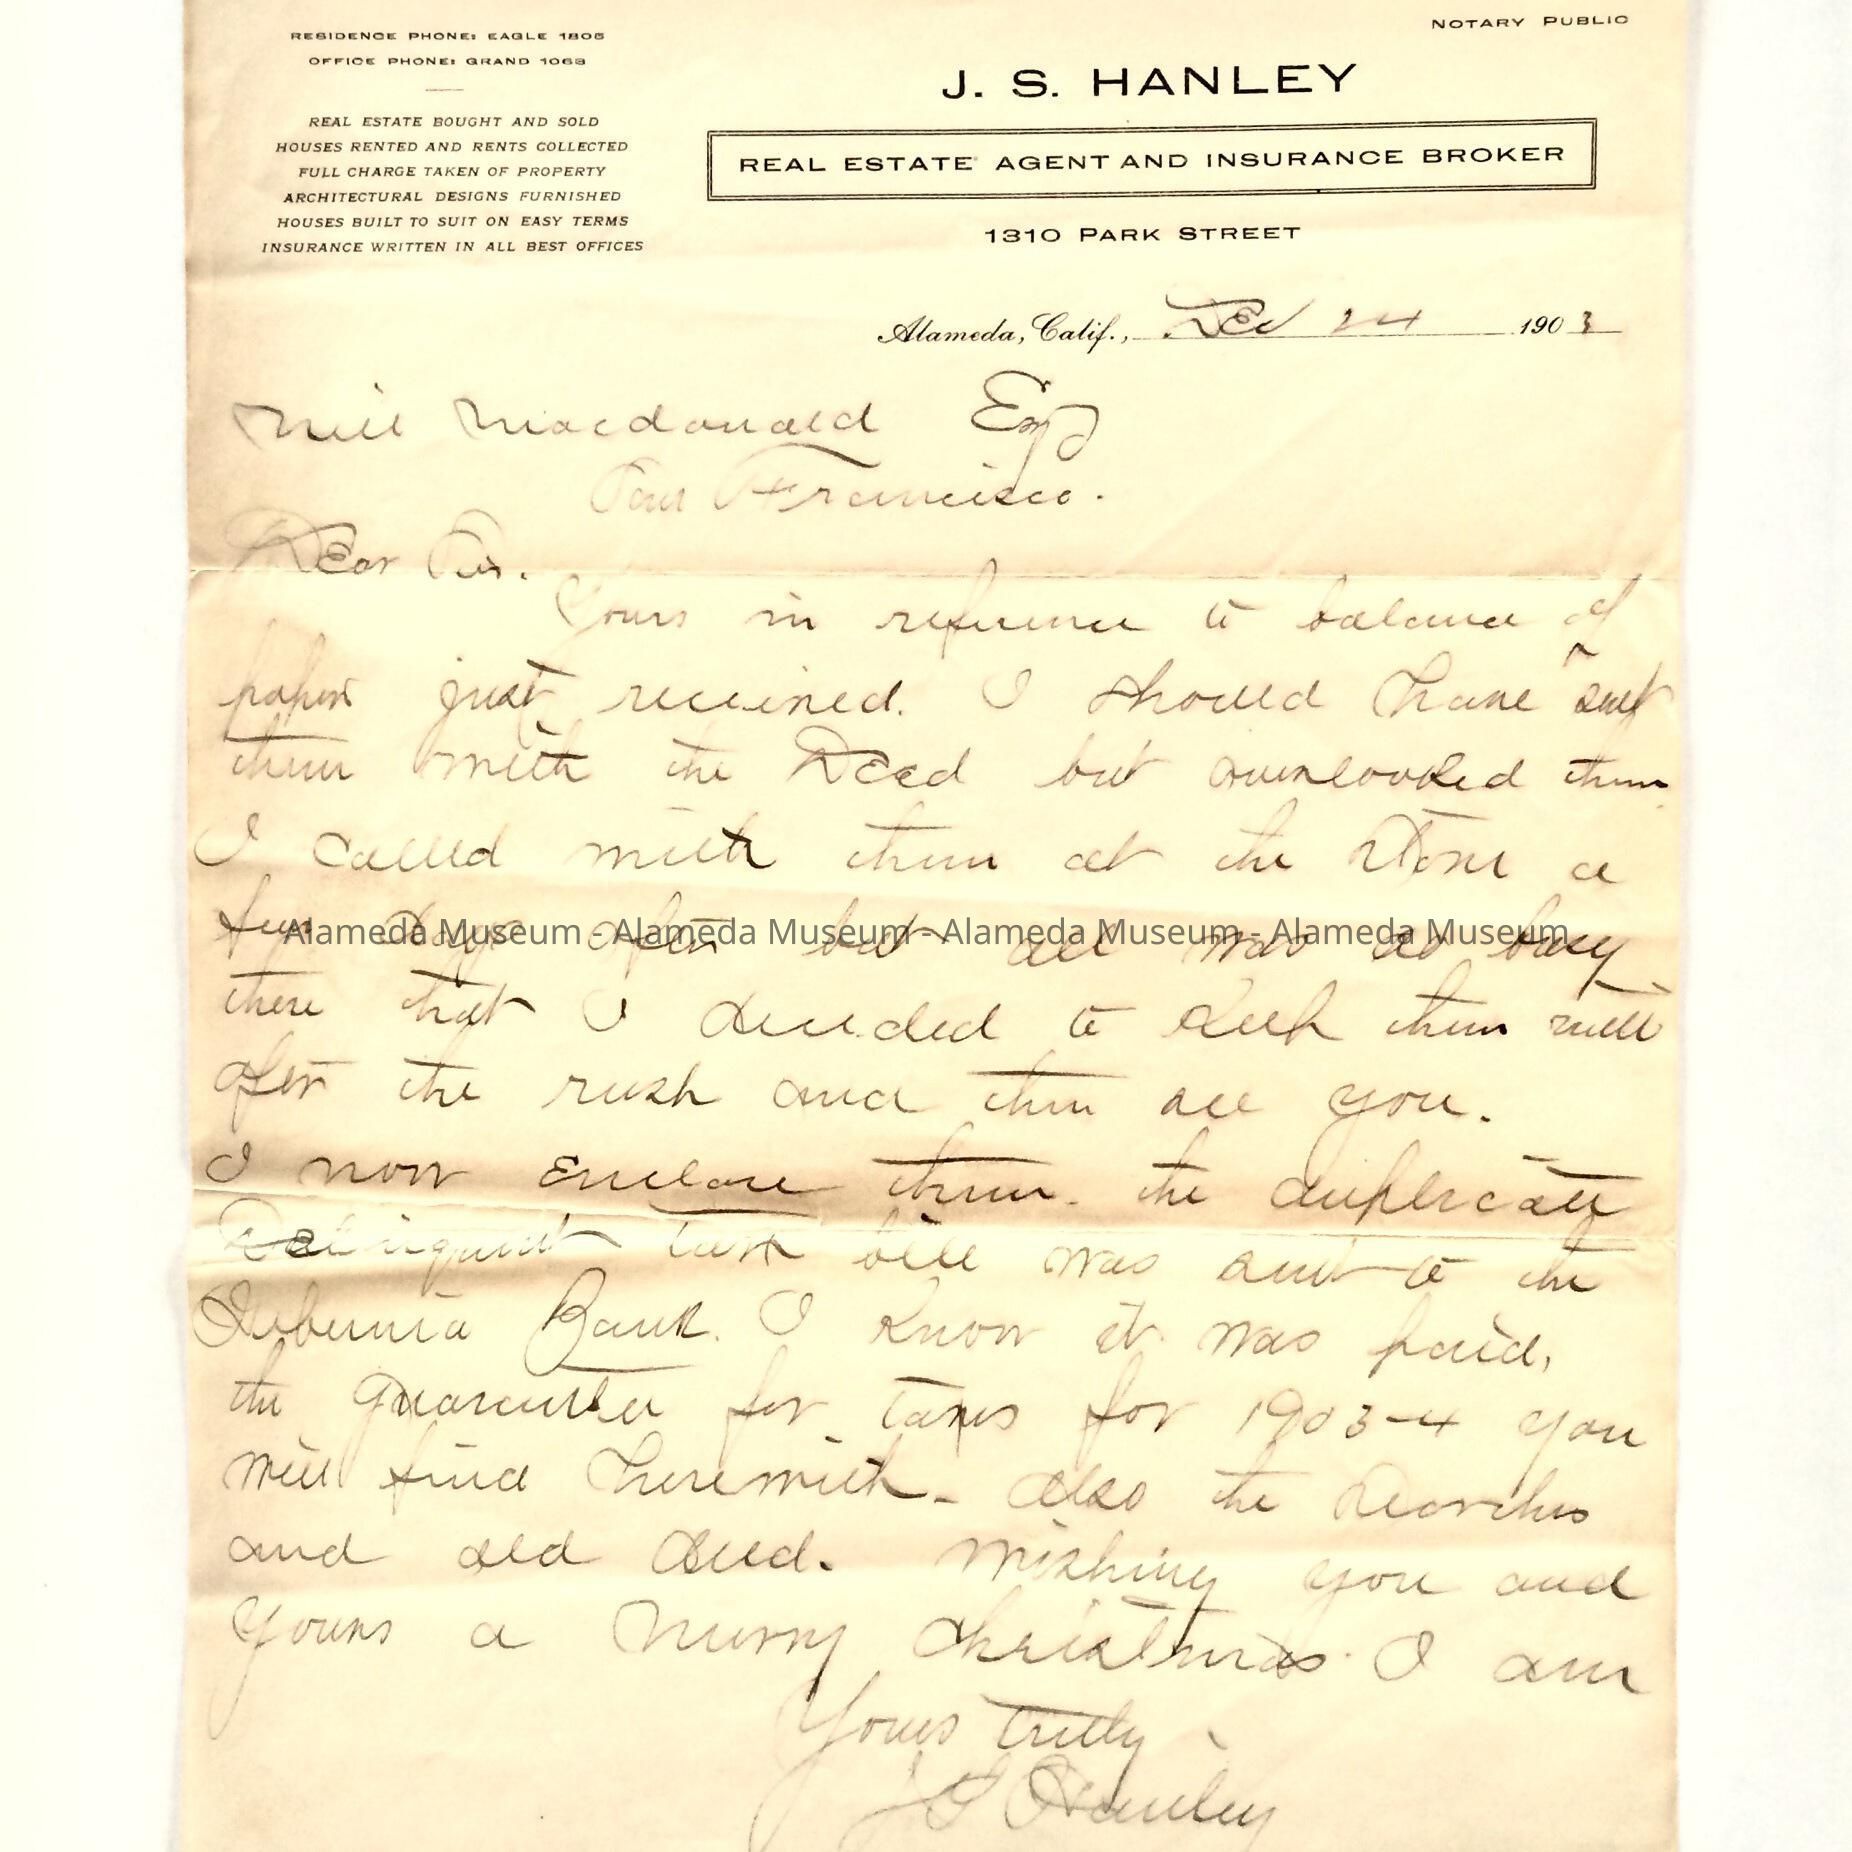 NOTARY PUBLIC
RESIDENCE PHONE: EAGLE 1805
OFFICE PHONE: GRAND 1063
REAL ESTATE BOUGHT AND SOLD
HOUSES RENTED AND RENTS COLLECTED
FULL CHARGE TAKEN OF PROPERTY
ARCHITECTURAL DESIGNS FURNISHED
HOUSES BUILT TO SUIT ON EASY TERMS
INSURANCE WRITTEN IN ALL BEST OFFICES
J. S. HANLEY
REAL ESTATE AGENT AND INSURANCE BROKER
1310 PARK STREET
Alameda, Calif., Dec 24 1903
Macdonald Esq
San Francisco.
Dear Sir.
Yours in reference to balance of
papers just received. I should have sent
them with the Deed but overlooked them
I called with them at the Store a
few days after but all was so busy
there that I decided to keep them until
after the rush and then see you.
I now enclose them. the duplicate
Delinquent tax bill was sent to the
Hibernia Bank. I know it was paid,
the guarantee for taxes for 1903-4 you
will find herewith - also the Searches
and old deed. Wishing you and
yours a merry Christmas. I am
Yours truly
J S Hanley
Alameda Museum - Alameda Museum - Alameda Museum - Alameda Museum